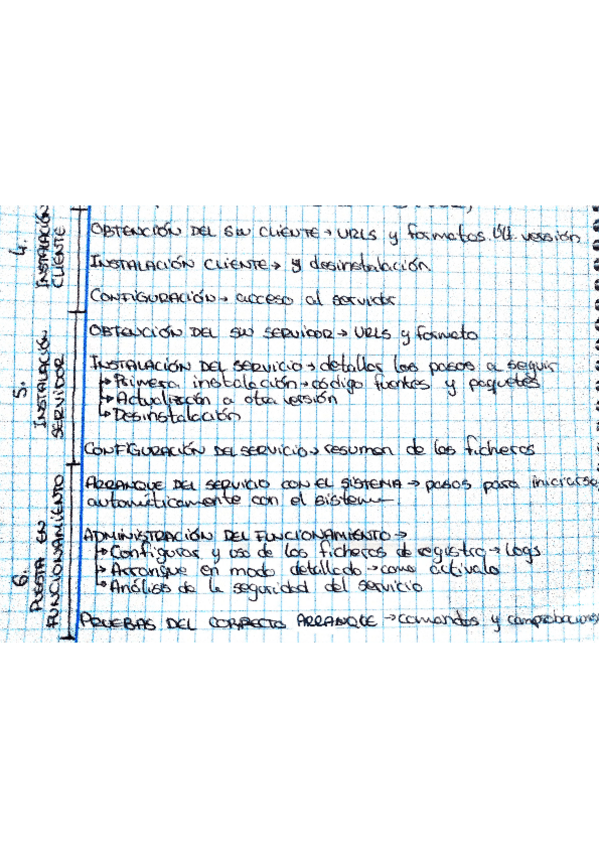 4. INSTALACIÓN CLIENTE
OBTENCIÓN DEL SW CLIENTE → URLS y formatos. últ. versión
INSTALACIÓN CLIENTE → y desinstalación.
CONFIGURACIÓN → acceso al servidor
5. INSTALACIÓN SERVIDOR
OBTENCIÓN DEL SW SERVIDOR → URLS y formato
INSTALACIÓN DEL SERVICIO → detallar los pasos a seguir
↳ Primera instalación → código fuentes y paquetes
↳ Actualización a otra versión
↳ Desinstalación
CONFIGURACIÓN DEL SERVICIO → resumen de los ficheros
6. PUESTA EN FUNCIONAMIENTO
ARRANQUE DEL SERVICIO CON EL SISTEMA → pasos para iniciarse
automáticamente con el sistema.
ADMINISTRACIÓN DEL FUNCIONAMIENTO →
↳ Configurar y uso de los ficheros de registro → logs
↳ Arranque en modo detallado → como activalo
↳ Análisis de la seguridad del servicio
PRUEBAS DEL CORRECTO ARRANQUE → comandos y comprobaciones